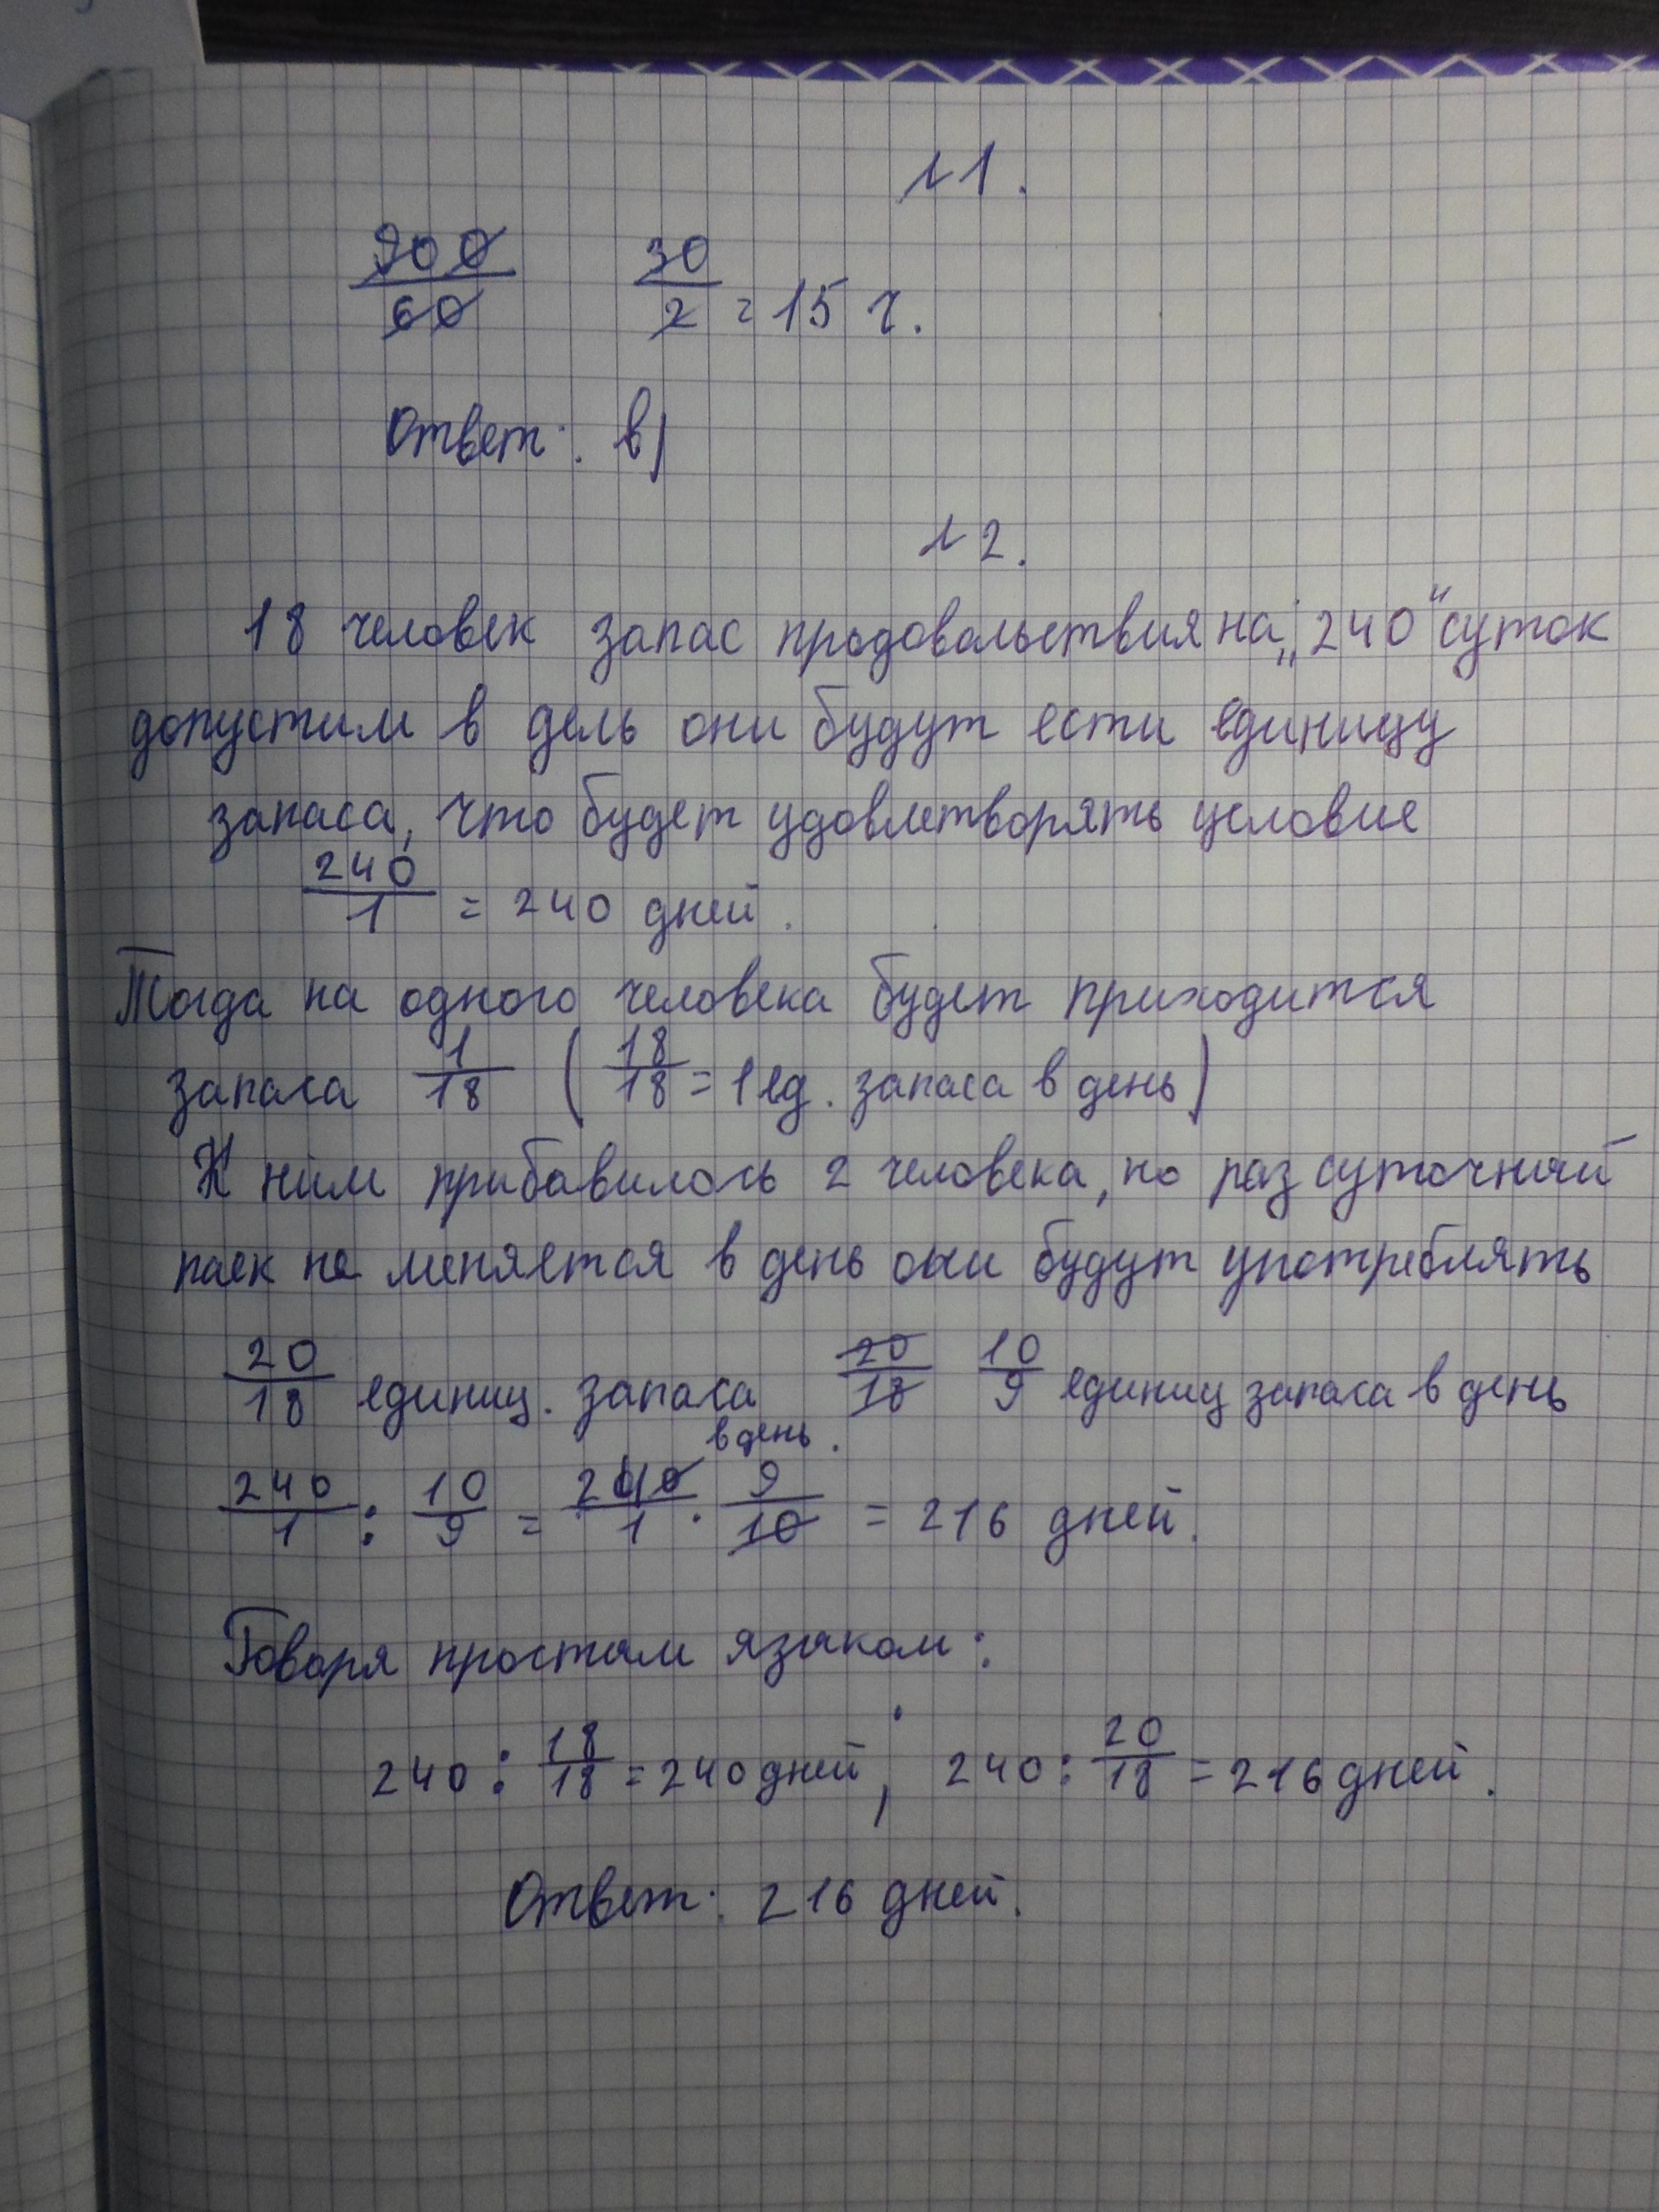 №1.
900/60 30/2 = 15 ч.
Ответ: в)
№2.
18 человек запас продовольствия на „240“ суток
допустим в день они будут ести единицу
запаса, что будет удовлетворять условие
240/1 = 240 дней.
Тогда на одного человека будет приходится
запаса 1/18 (18/18 = 1 ед. запаса в день)
К ним прибавилось 2 человека, но раз суточный
паек не меняется в день они будут употреблять
20/18 единиц. запаса в день. 20/18 10/9 единиц запаса в день
240/1 : 10/9 = 240/1 · 9/10 = 216 дней.
Говоря простым языком:
240 : 18/18 = 240 дней; 240 : 20/18 = 216 дней.
Ответ: 216 дней.